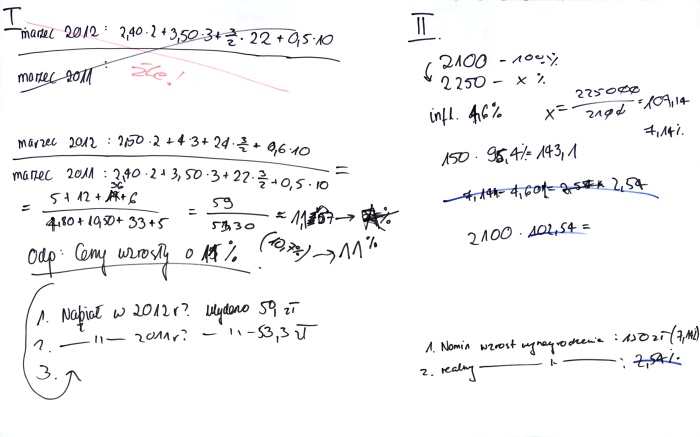 I
marzec 2012 : 2,40·2+3,50·3+3/2·22+0,5·10
marzec 2011 :
źle!
marzec 2012 : 2,50·2+4·3+24·3/2+0,6·10
marzec 2011 : 2,40·2+3,50·3+22·3/2+0,5·10 =
= 5+12+36+6 / 4,80+10,50+33+5 = 59 / 53,30 ≈ →
Odp: Ceny wzrosły o % (10,7%) → 11%
1. Napiał w 2012r? wydano 59 zł
2. —"— 2011r? —"— 53,3 zł
3.
II.
2100 – 100%
2250 – x %
infl. 4,6% x = 225000 / 2100 = 107,14
7,14%
150 · 95,4% = 143,1
4,60% 2,54
2100 · 102,54 =
1. Nomin wzrost wynagrodzenia : 150 zł (7,14%)
2. realny —"— : 2,54%